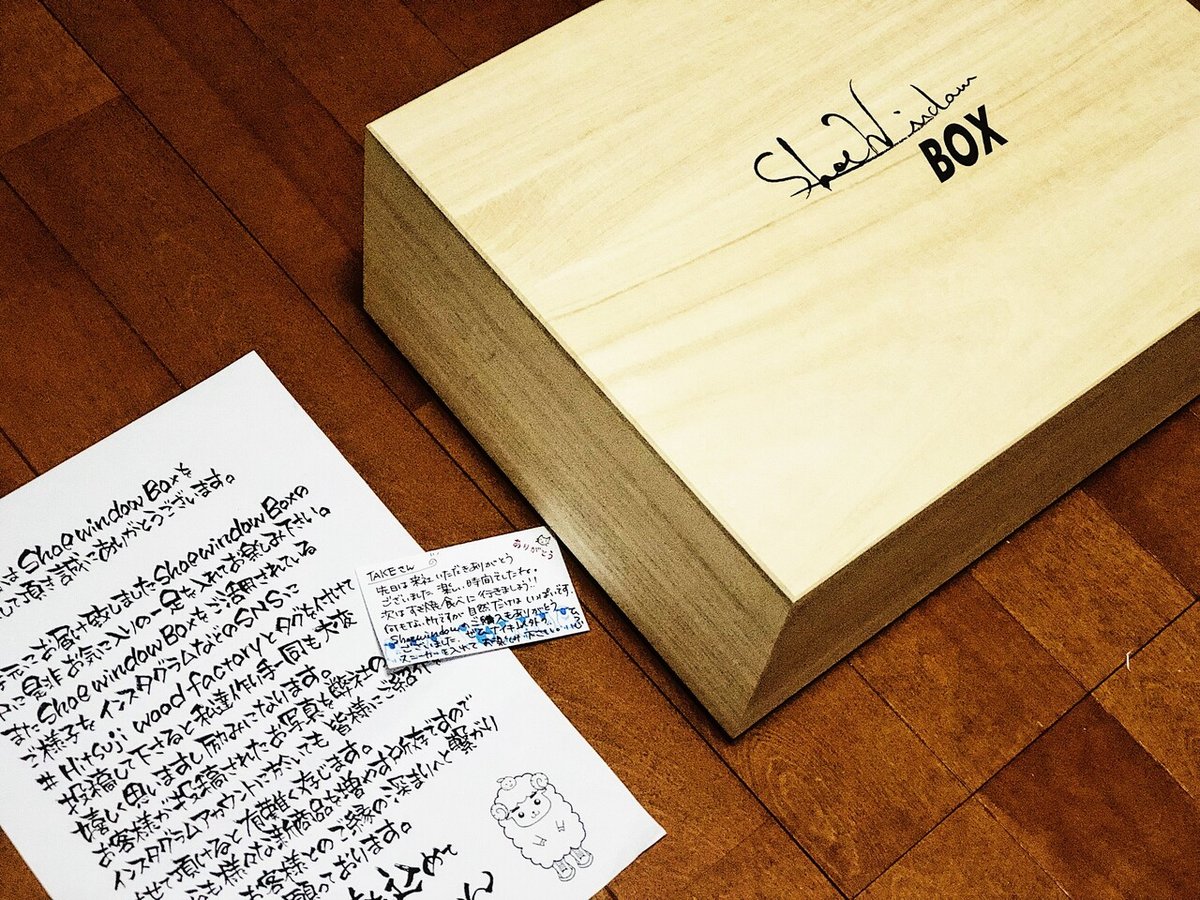 Shoe Window
BOX
Shoe window Boxを
して頂き誠にありがとうございます。
元にお届け致しましたShoe window Boxの
に是非お気に入りの一足を入れてお楽しみ下さい。
またShoe window Boxをご活用されている
ご様子をインスタグラムなどのSNSに
# Hitsuji wood factoryとタグを付けて
投稿して下さると私達作り手一同も大変
嬉しく思いますし励みになります。
お客様が投稿されたお写真を弊社の
インスタグラムアカウントにおいても皆様にご紹介
せて頂けると有難く存じます。
も様々な新商品を増やす所存ですので
お客様とのご縁の深まりへと繋がり
願っております。
込めて
ありがとう
TAKEさん
先日は来社いただきありがとう
ございました。楽しい時間でしたね。
次はすき焼食べに行きましょう!!
何もない村ですが自然だけはいっぱいです。
Shoe windowのご購入もありがとう
ございました。ぜひナイキ以外の
スニーカーを入れてお楽しみ下さい。